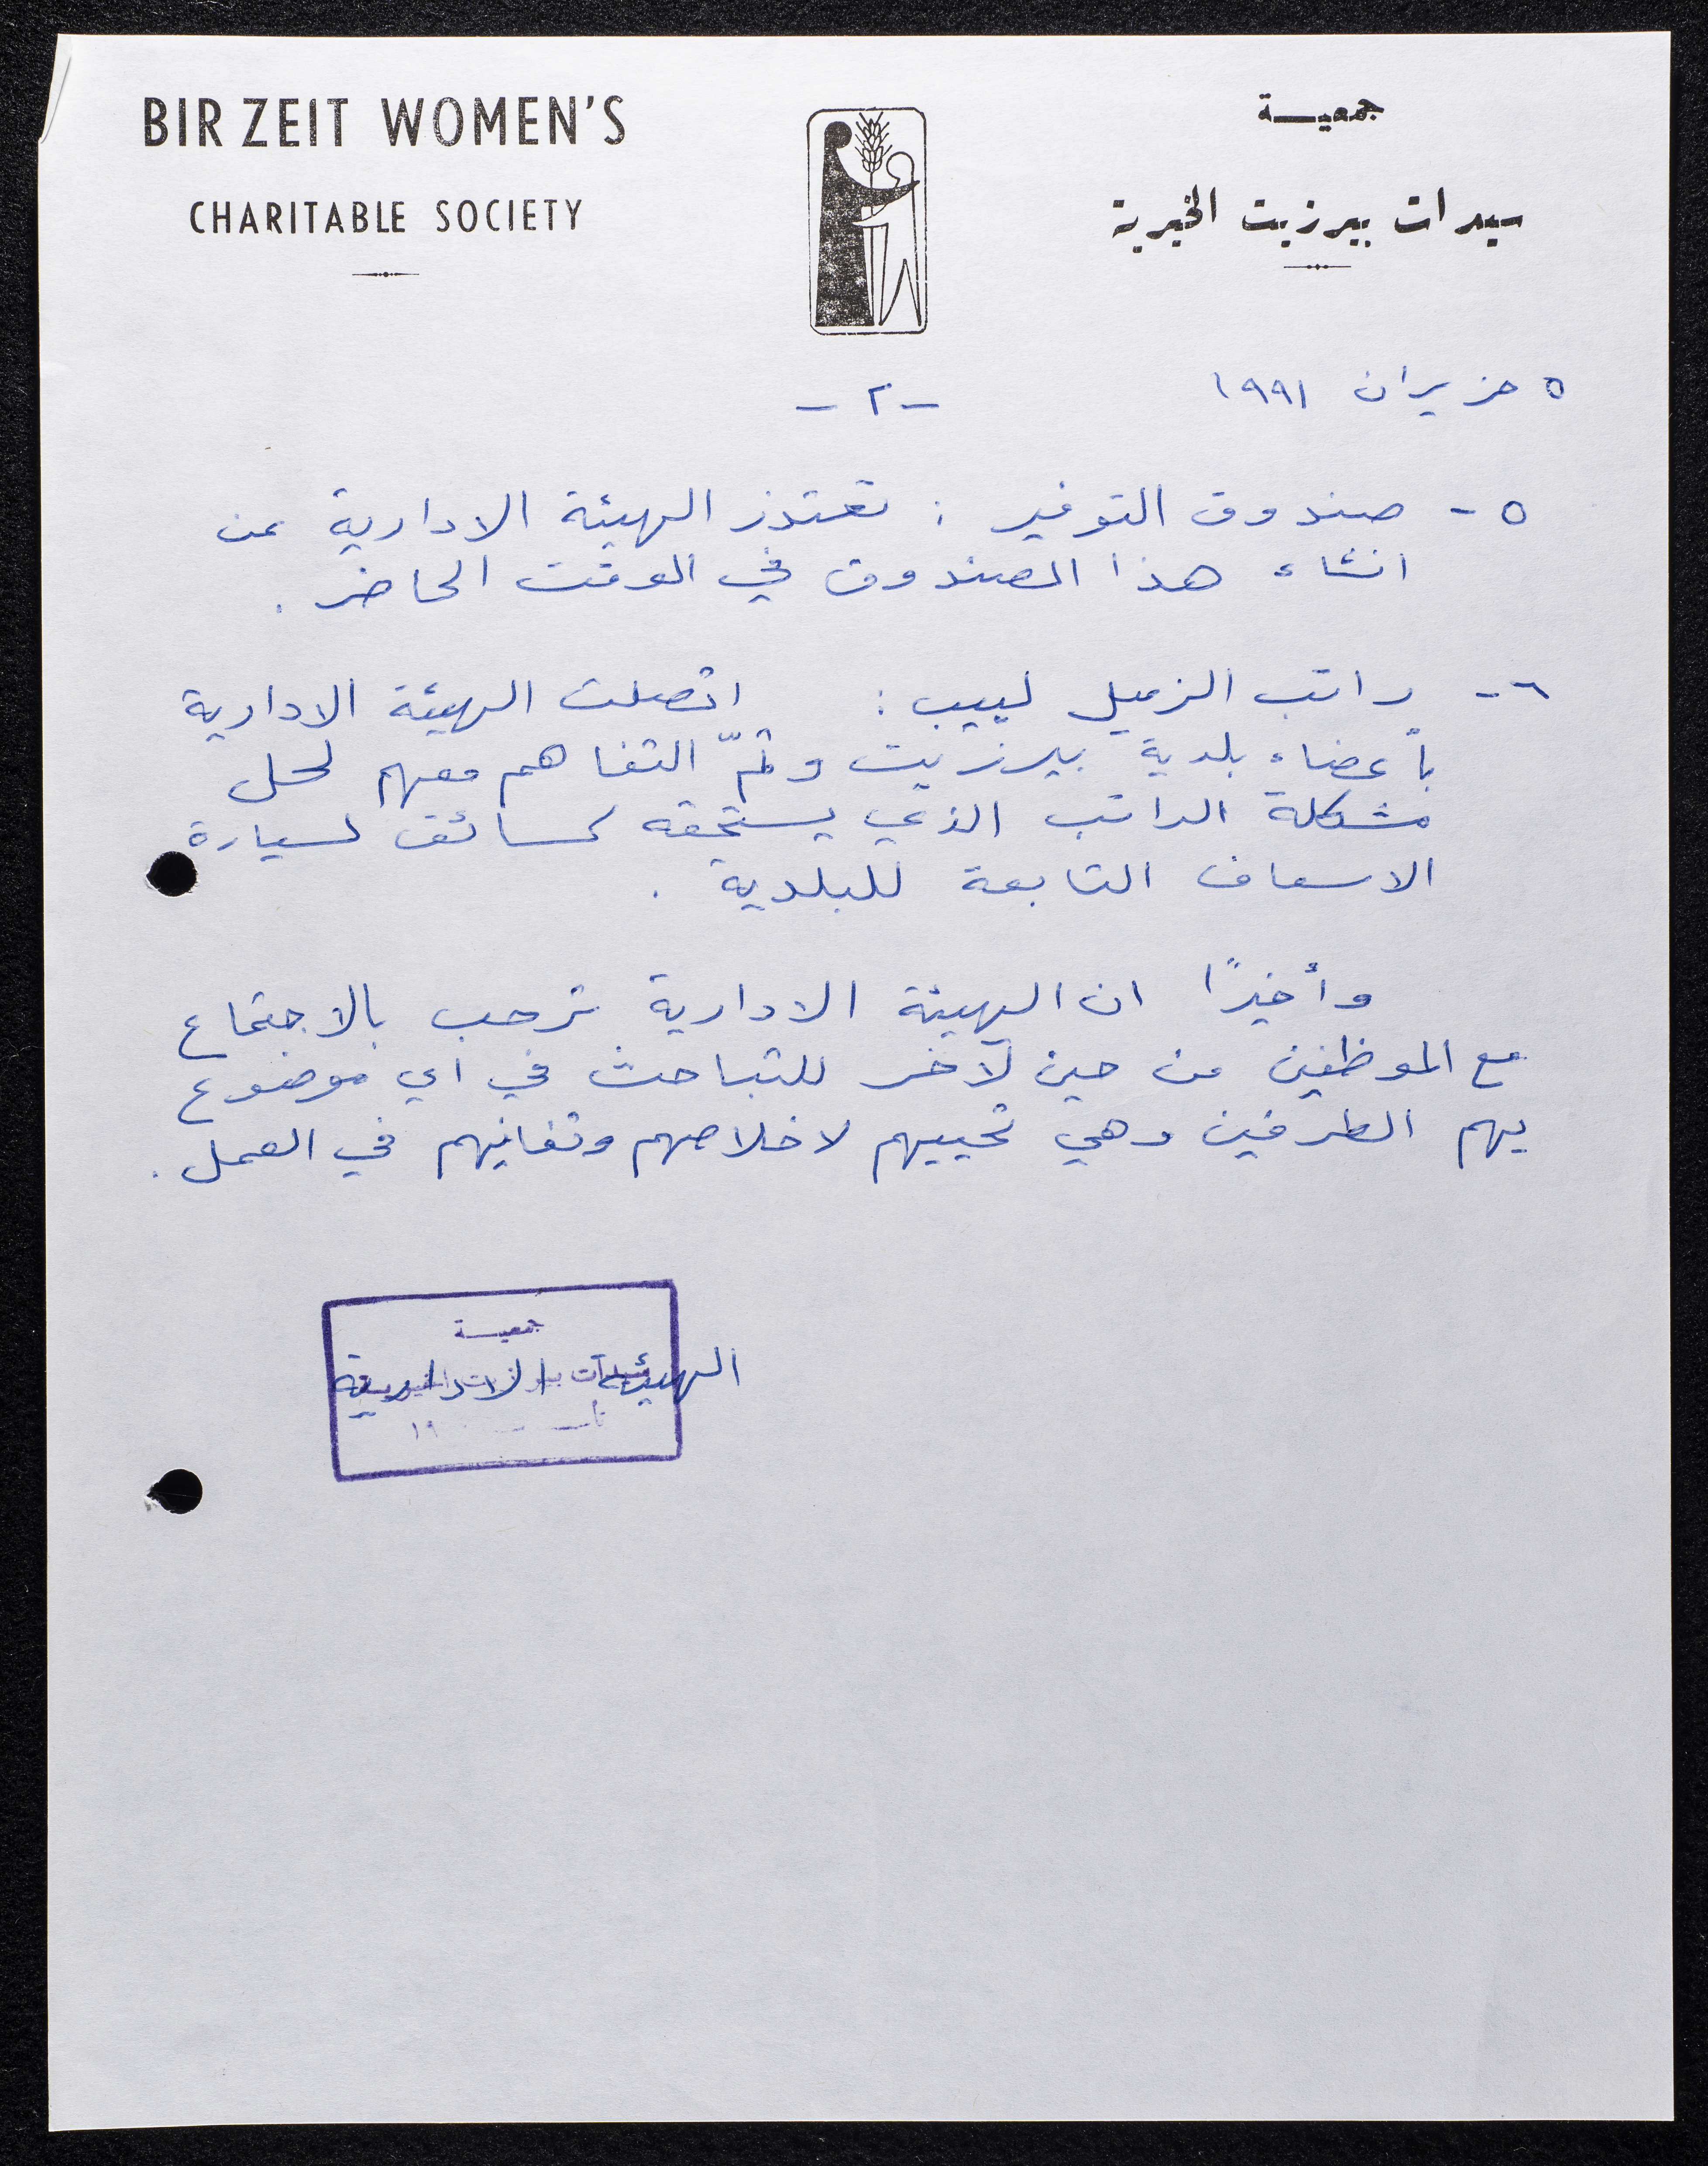 BIR ZEIT WOMEN'S
CHARITABLE SOCIETY
جمعيـــة
سيدات بيرزيت الخيرية
٥ حزيران ١٩٩١
- ٢ -
٥ - صندوق التوفير : تعتذر الهيئة الادارية عن
انشاء هذا الصندوق في الوقت الحاضر .
٦ - راتب الزميل لبيب : اتصلت الهيئة الادارية
بأعضاء بلدية بيرزيت وتمّ التفاهم معهم لحل
مشكلة الراتب الذي يستحقه كسائق لسيارة
الاسعاف التابعة للبلدية .
وأخيرًا ان الهيئة الادارية ترحب بالاجتماع
مع الموظفين من حين لآخر للتباحث في اي موضوع
يهم الطرفين وهي تحييهم لاخلاصهم وتفانيهم في العمل .
جمعيـــة
الهيئة الادارية